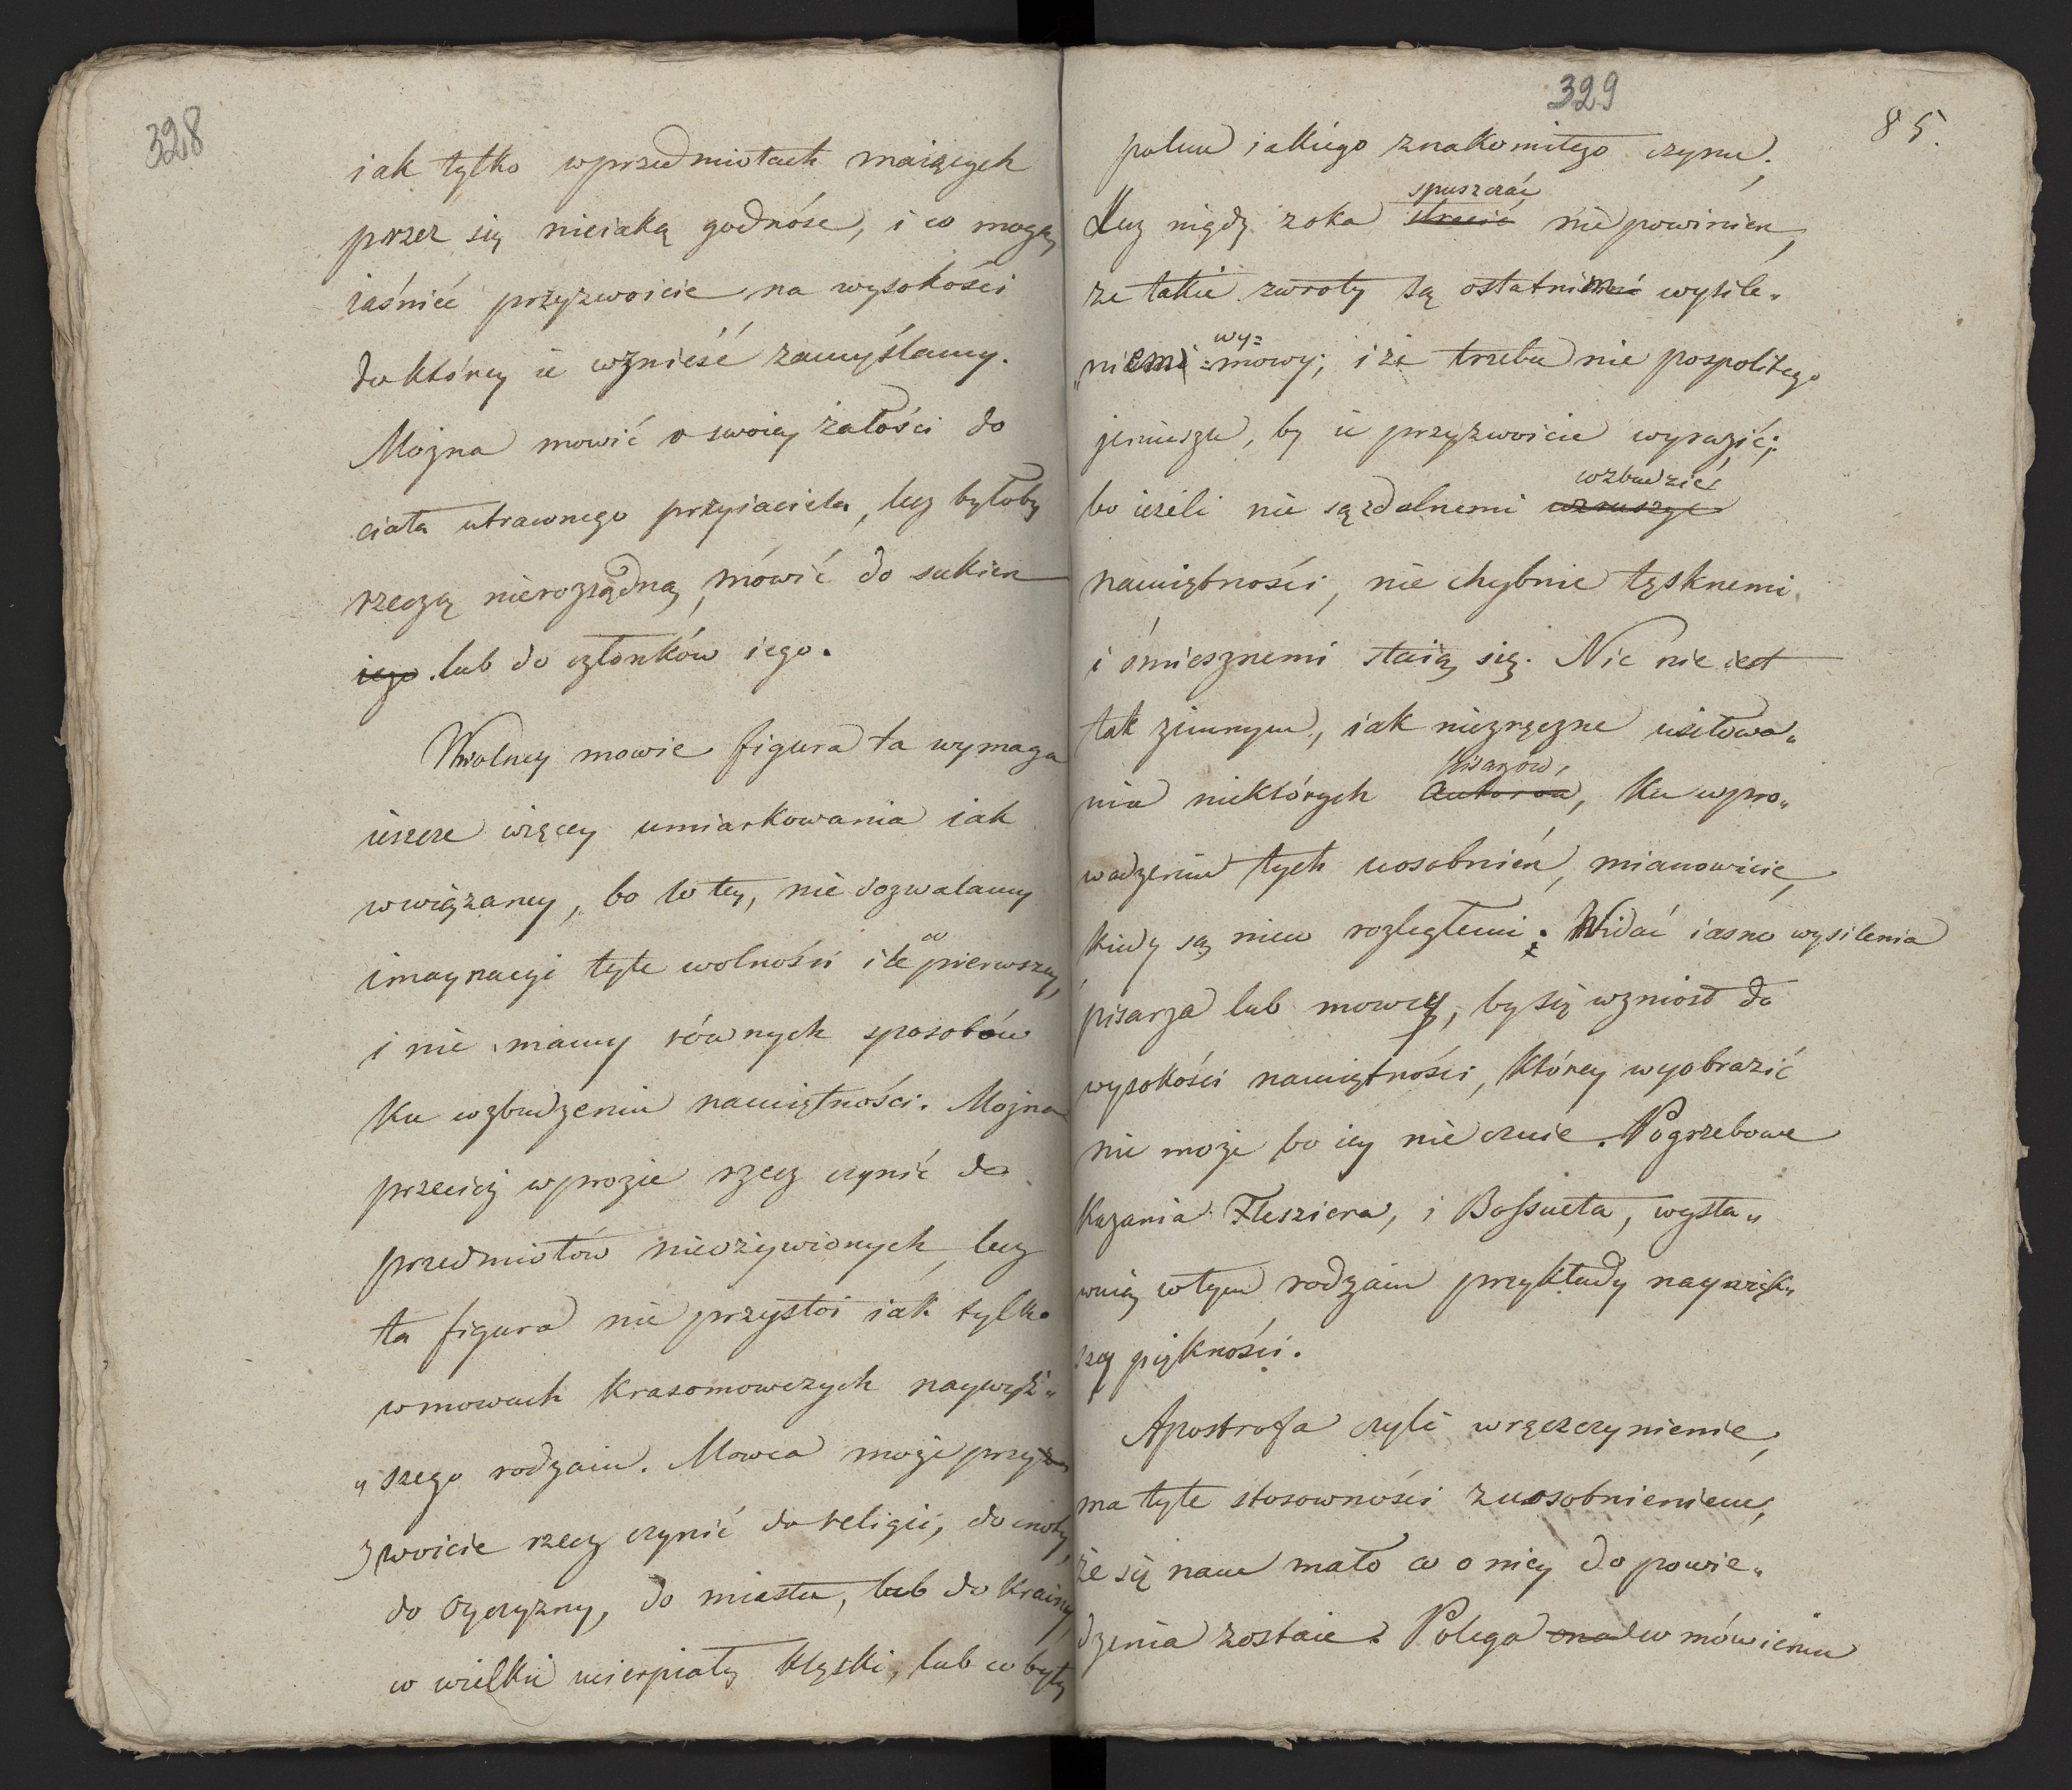 328
iak tylko w przedmiotach maiących
przez się nieiaką godnośc, i co mogą
iaśnieć przyzwoicie na wysokości
do którey ie wznieść zamyślamy.
Mozna mowić o swoiey żałości do
ciała utraconego przyiaciela, lecz byłoby
rzeczą nierozsądną, mówić do sukien
iego lub do członków iego.
Wwolney mowie figura ta wymaga
ieszcze więcey umiarkowania iak
w wiązaney, bo to tey, nie dozwalamy
imaynacyi tyle wolności ile co pierwszey,
i nie mamy równych sposobów
Ku wzbudzeniu namiętności. Mozna
przecież w prozie rzecz czynić do
przedmiotów nieożywionych, lecz
ta figura nie przystoi iak tylko
w mowach krasomowczych naywyż„
„szego rodzaiu. Mowca może przy
zwoicie rzecz czynić do religii, do cnoty,
do Oyczyzny, do miasta, lub do Krainy,
co wielkie ucierpiały klęski, lub co były
329
85.
polem iakiego znakomitego czynu;
Lecz nigdy z oka stracić spuszczać nie powinien,
ze takie zwroty są ostatniemi wysile„
„niemi wy=mowy; i że trzeba nie pospolitego
jeniuszu, by ie przyzwoicie wyrazić;
bo ieżeli nie są zdolnemi wzruszyć wzbudzić
namiętności, nie chybnie tęsknemi
i śmiesznemi staią się. Nic nie iest
tak zimnym, iak niezręczne usiłowa„
nia niektórych autorów pisarzów, ku wpro„
wadzeniu tych uosobnień, mianowicie,
kiedy są nieco rozległemi. Widać iasno wysilenia
pisarza lub mowcy, by się wzniosł do
wysokości namiętności, którey wyobrazić
nie może bo iey nie czuie. Pogrzebowe
Kazania Flesziera, i Bossueta, wysta„
wuią w tym rodzaiu przykłady naywięk„
szey piękności.
Apostrofa czyli wręczczynienie,
ma tyle stosowności z uosobnieniem,
że się nam mało co o niey do powie„
dzenia zostaie. Polega ona w mówieniu